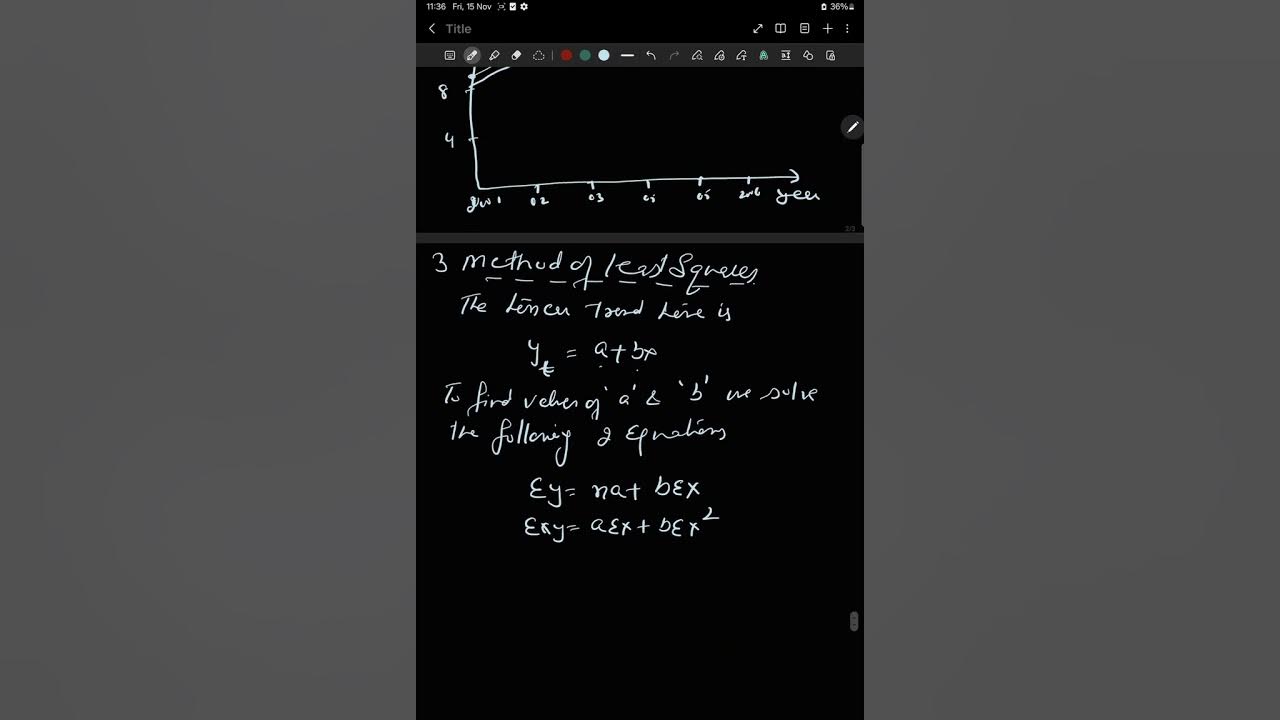 11:36 Fri, 15 Nov 36%
Title
8
4
02 03 05 year
2/3
3 Method of Least Squares
The Linear Trend Line is
yt = a + bx
To find values of 'a' & 'b' we solve
the following 2 Equations
Σy = na + bΣx
Σxy = aΣx + bΣx²